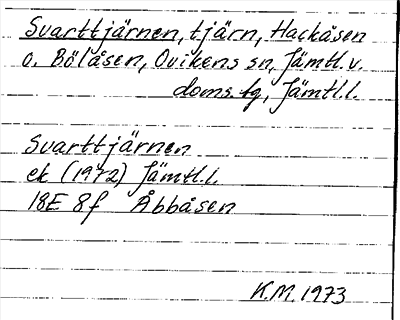 Svarttjärnen, tjärn, Hackåsen
o. Bölåsen, Ovikens sn, Jämtl. v.
doms. tg, Jämtl. l.
Svarttjärnen
ek (1972) Jämtl. l.
18E 8f Åbbåsen
K.M. 1973